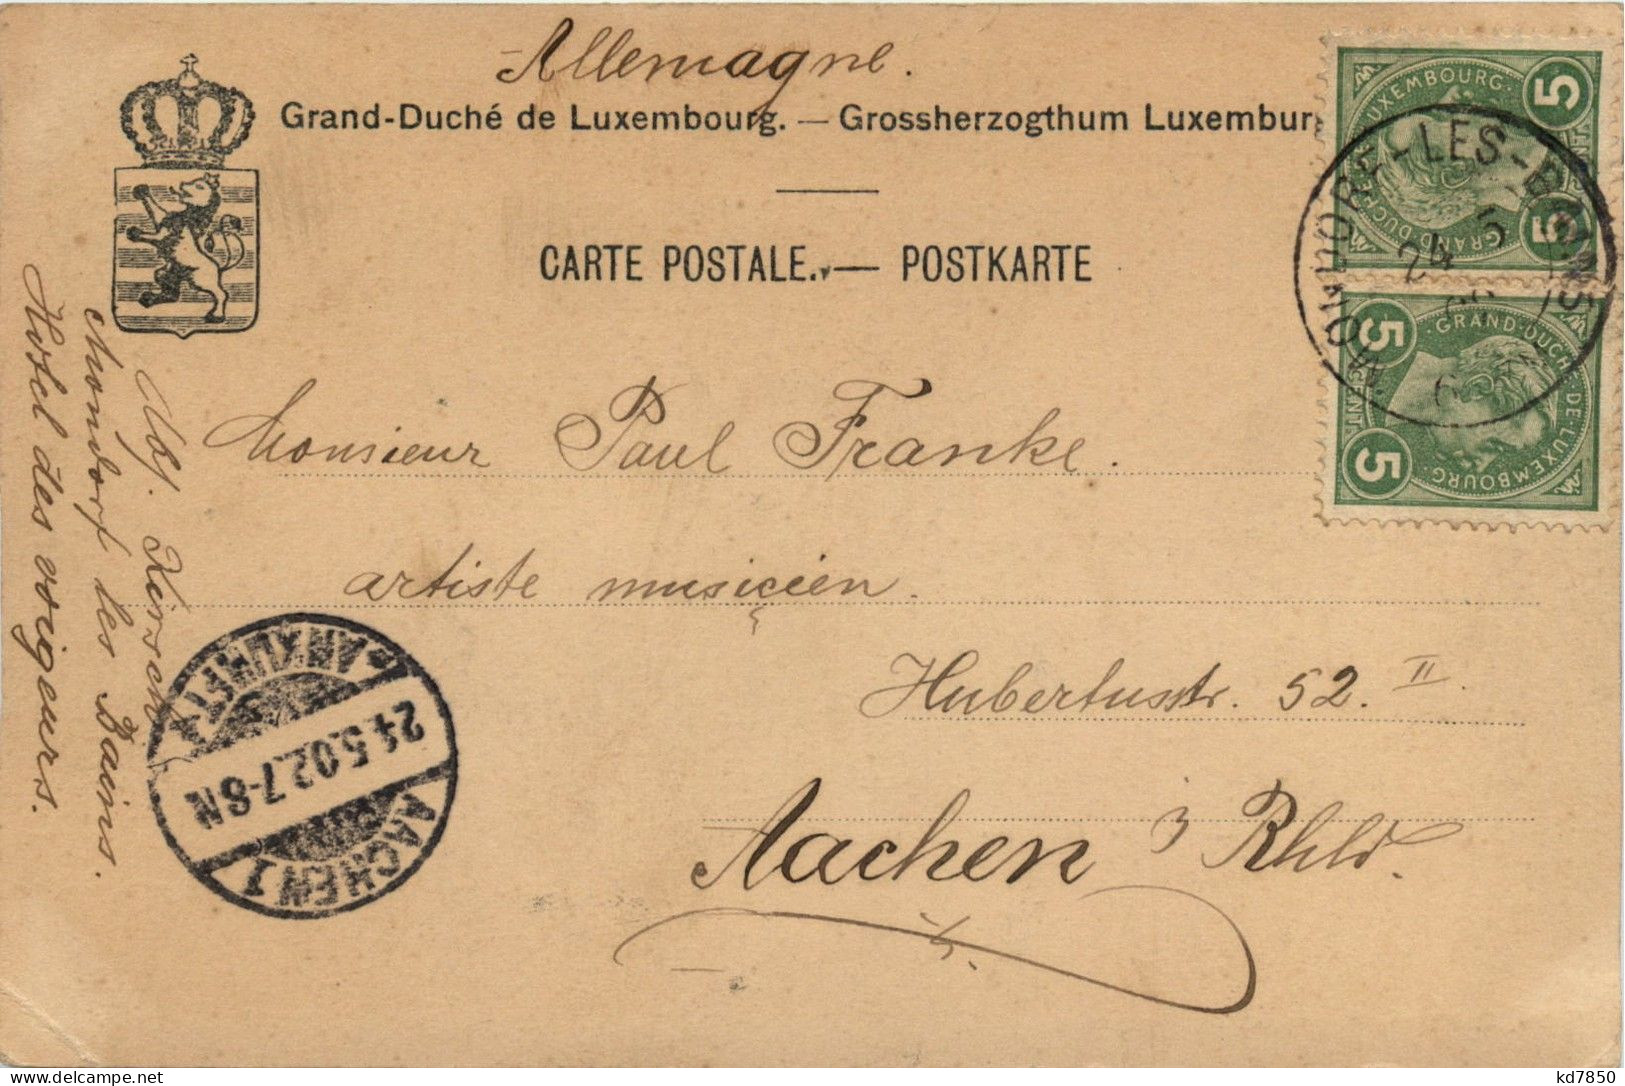 Allemagne.
Grand-Duché de Luxembourg. — Grossherzogthum Luxembur
CARTE POSTALE. — POSTKARTE
Monsieur Paul Franke.
artiste musicien.
Hubertusstr. 52. II.
Aachen Rhld.
Abs. Kersch
Mondorf les Bains.
Hotel des voyageurs.
GRAND-DUCHÉ DE LUXEMBOURG
5 5
GRAND-DUCHÉ DE LUXEMBOURG
5 5
MONDORF-LES-BAINS
24 5
6
ANKUNFT
24.5.02.7-8N
AACHEN 1
kd7850